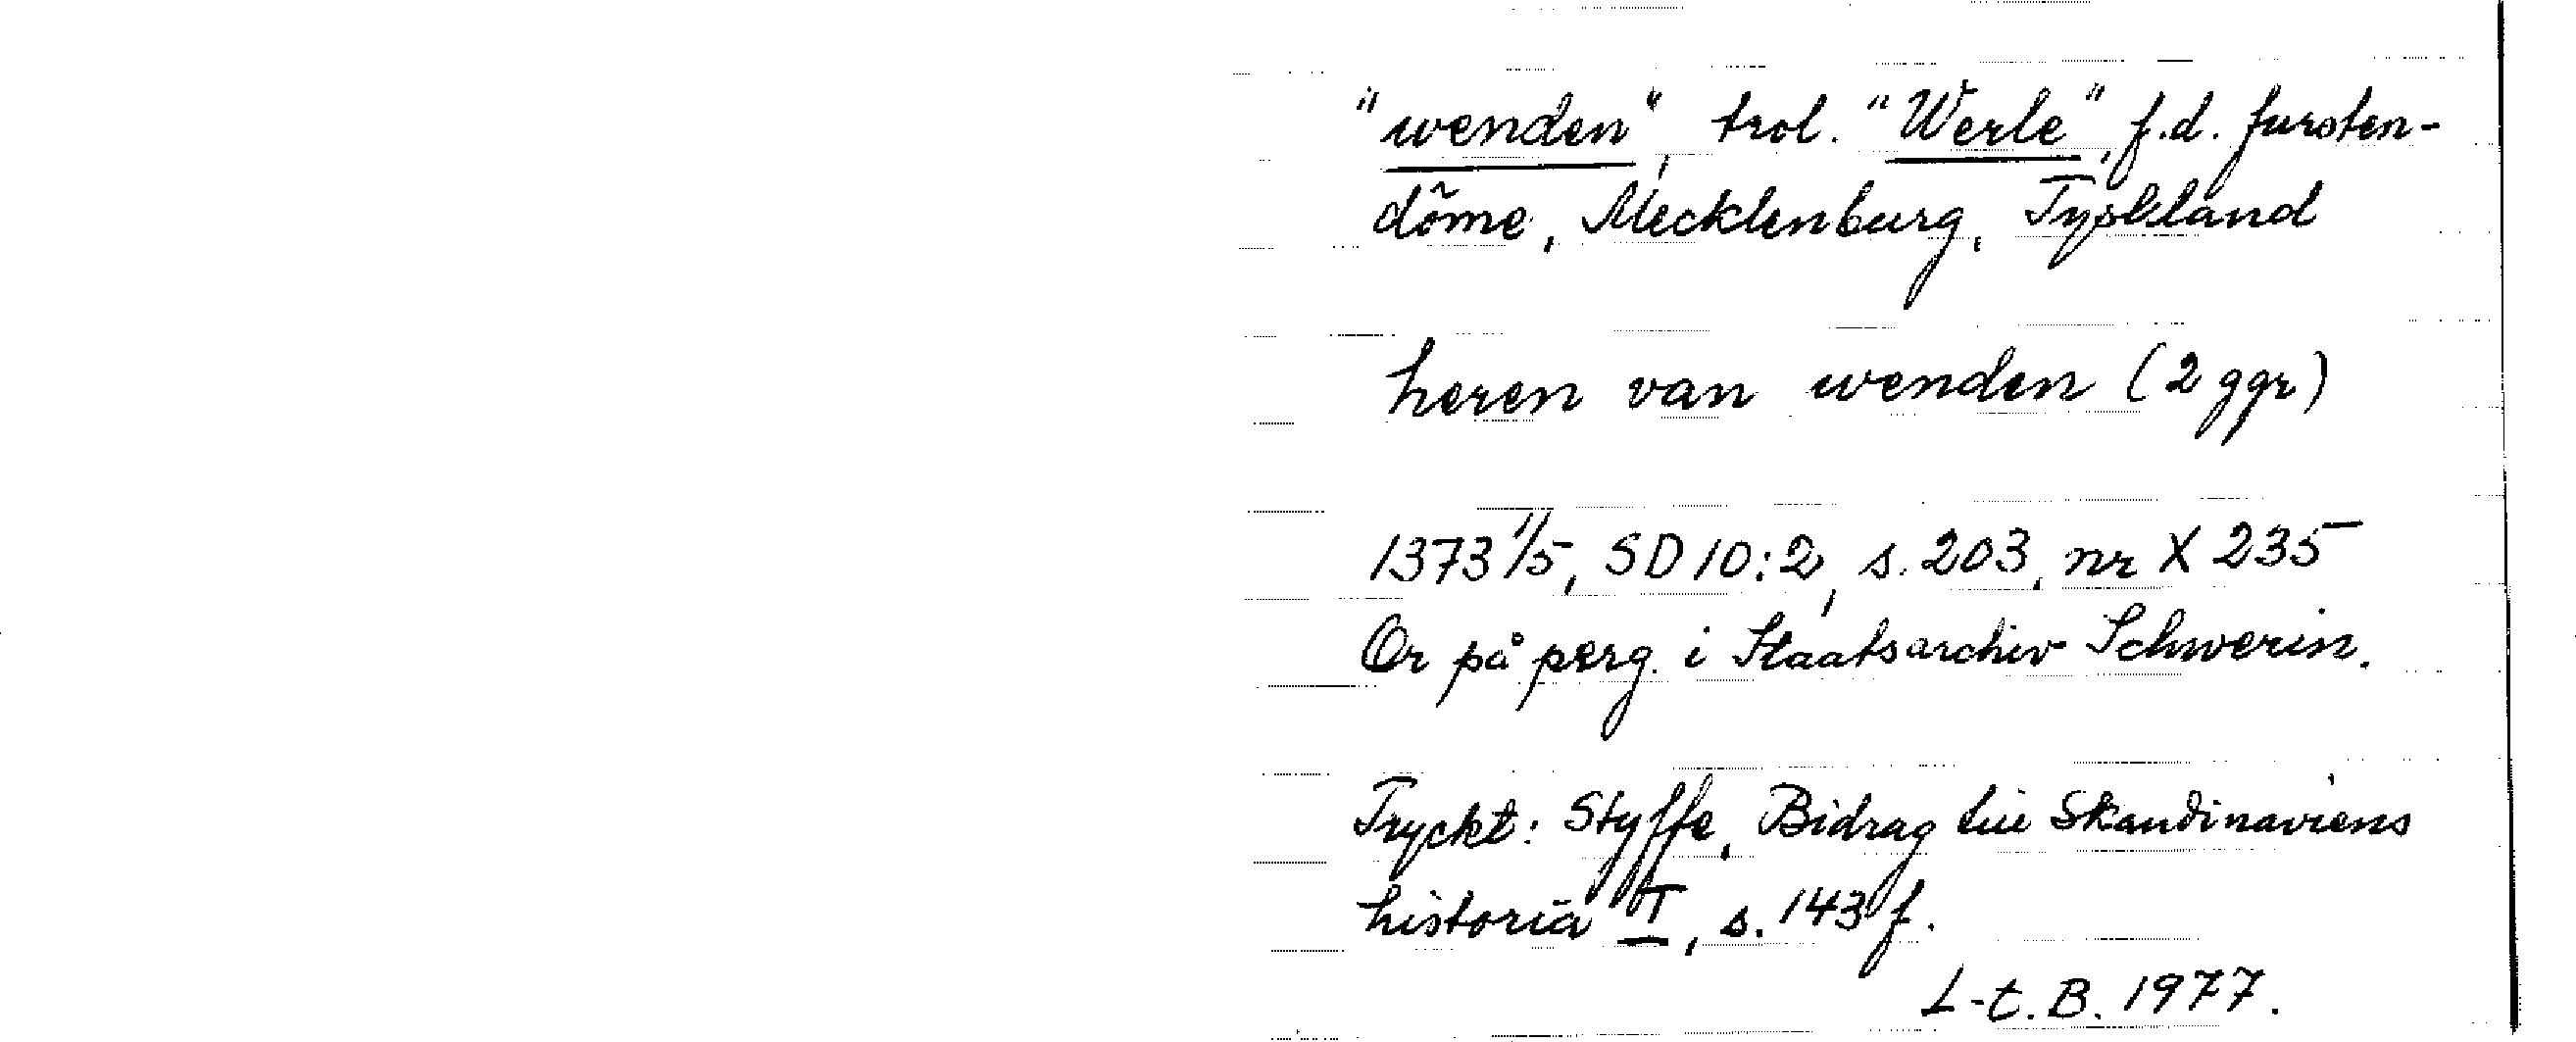 "wenden", trol. "Werle", f.d. fursten-
döme, Mecklenburg, Tyskland
heren van wenden (2 ggr)
1373 1/5, SD 10:2, s. 203, nr X 235
Or på perg. i Staatsarchiv Schwerin.
Tryckt: Styffe, Bidrag till Skandinaviens
historia I, s. 143 f.
L-t. B. 1977.